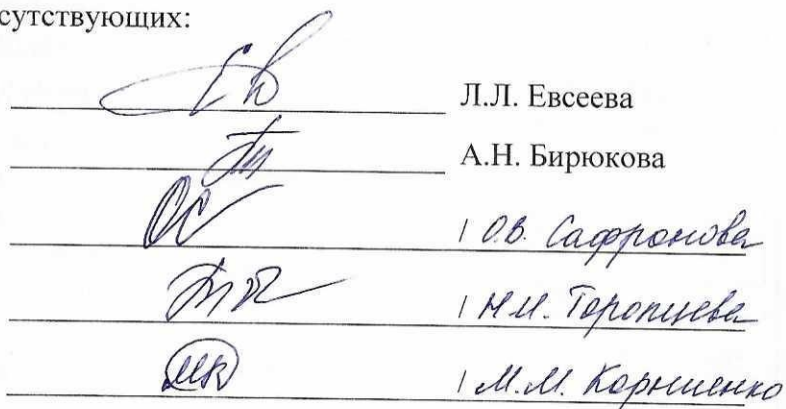 сутствующих:
Л.Л. Евсеева
А.Н. Бирюкова
ОС / О.В. Сафронова
/ Н.И. Торопцева
МК / М.М. Корниенко